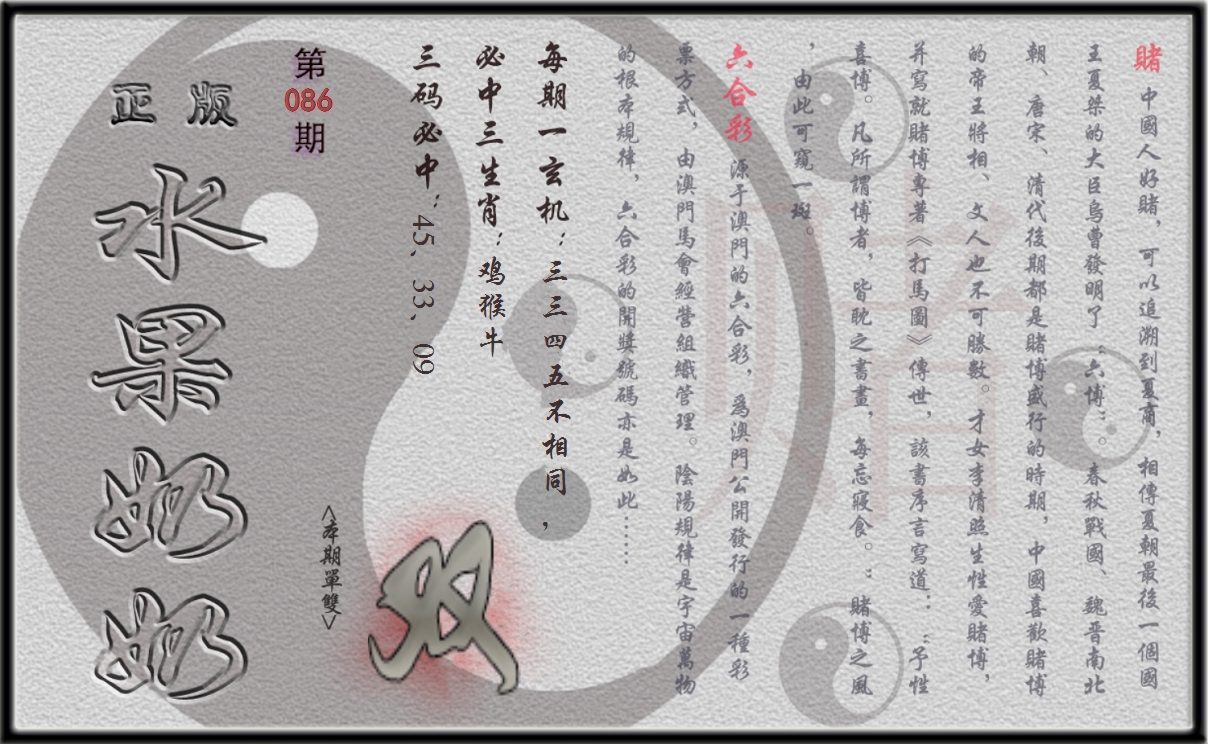 賭 中國人好賭，可以追溯到夏商，相傳夏朝最後一個國
王夏桀的大臣烏曹發明了“六博”。春秋戰國、魏晉南北
朝、唐宋、清代後期都是賭博盛行的時期，中國喜歡賭博
的帝王將相、文人也不可勝數。才女李清照生性愛賭博，
并寫就賭博專著《打馬圖》傳世，該書序言寫道：“予性
喜博。凡所謂博者，皆眈之書畫，每忘寢食。：賭博之風
，由此可窺一斑。
六合彩 源于澳門的六合彩，爲澳門公開發行的一種彩
票方式，由澳門馬會經營組織管理。陰陽規律是宇宙萬物
的根本規律，六合彩的開獎號碼亦是如此……
每期一玄机：三三四五不相同，
必中三生肖：鸡猴牛
三码必中：45、33、09
双
<本期單雙>
第
086
期
正版
水果奶奶
赌